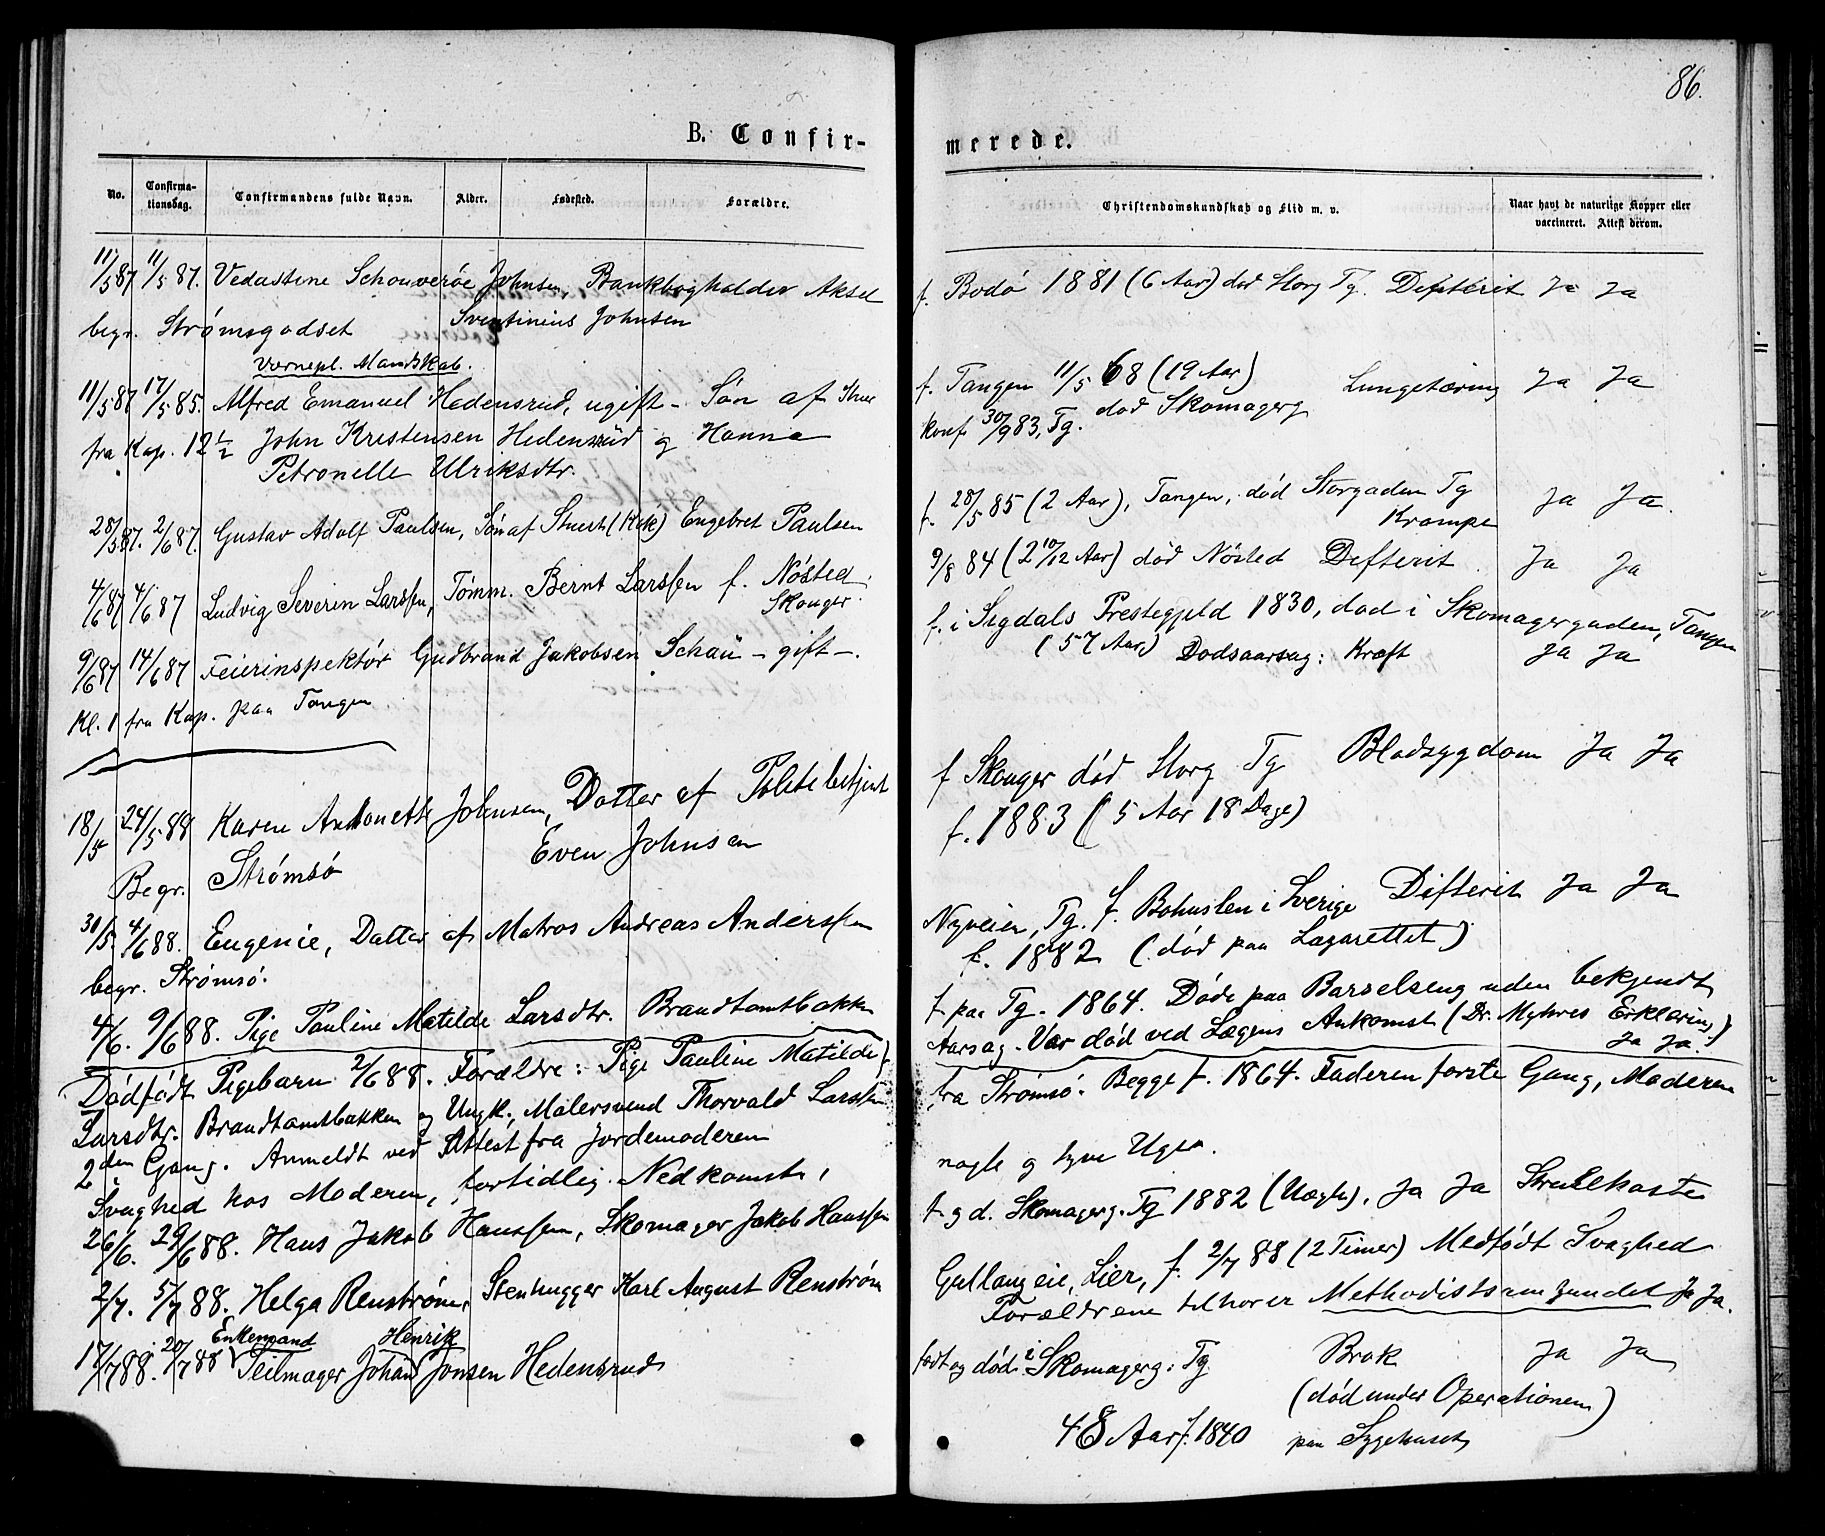 B. Confir-
No.
Confirma-
tionsdag.
Confirmandens fulde Navn.
Alder.
Fødested.
Forældre.
11/5 87 11/5 87. Vedastine Schouverøe Johnsen, Bankbogholder Aksel
begr. Strømsgodset Sventinius Johnsen
Vernepl. Mandskab.
11/5 87 17/5 85. Alfred Emanuel Hedensrud, ugift - Søn af
fra Kap. 12 1/2 John Kristensen Hedensrud og Hanna
Petronelle Ulriksdtr.
28/5 87. 2/6 87. Gustav Adolf Paulsen, Søn af Stuert (Kok) Engebret Paulsen
4/6 87 4/6 87 Ludvig Severin Larssen, Tømm. Bernt Larssen f. Nøsted
Skoger.
9/6 87 14/6 87 Feierinspektør Gudbrand Jakobsen Schau - gift -.
Kl. 1 fra Kap. paa Tangen
18/5 24/5 88 Karen Antonette Johnsen, Datter af Politebetjent
Even Johnsen
Begr. Strømsø
30/5. 4/6 88. Eugenie, Datter af Matros Andreas Anderssen
begr. Strømsø.
4/6. 9/6 88. Pige Pauline Matilde Larsdtr. Brandtamtbakken
Dødfødt Pigebarn 2/6 88. Forældre: Pige Pauline Matilde
Larsdtr. Brandtamtbakken og Ungk. Malersvend Thorvald Larssen
2den Gang. Anmeldt ved Attest fra Jordemoderen
Svaghed hos Moderen, fortidlig Nedkomst,
26/6. 29/6 88. Hans Jakob Hanssen, Skomager Jakob Hanssen
2/7. 5/7 88. Helga Renstrøm, Stenhugger Karl August Renstrøm
Enkemand Henrik
17/7 88. 20/7 88 Seilmager Johan Jonsen Hedensrud
86.
merede.
Christendomskundskab og Flid m. v.
Naar havt de naturlige Kopper eller
vaccineret. Attest derom.
f. Bodø 1881 (6 Aar) død Storg Tg. Difterit Ja Ja
f. Tangen 11/5 68 (19 Aar) Lungetæring Ja Ja
konf. 30/9 83, Tg. død Skomagerg
f. 28/5 85 (2 Aar), Tangen, død Storgaden Tg Ja Ja.
Krampe
9/8 84 (2 10/12 Aar) død Nøsted Difterit Ja Ja
f. i Sigdals Prestegjeld 1830, død i Skomagergaden, Tangen
(57 Aar) Dødsaarsag: Kræft Ja Ja
f Skoger død Storg Tg Blodsygdom Ja Ja
f. 1883 (5 Aar 18 Dage)
Nyveien, Tg. f. Bohuslen i Sverige Difterit Ja Ja
f. 1882 (død paa Lazarettet)
f paa Tg. 1864. Døde paa Barselseng uden bekjendt
Aarsag. Var død ved Lægens Ankomst (Dr. Myhres Erklæring)
Ja Ja.
fra Strømsø. Begge f. 1864. Faderen første Gang, Moderen
nogle og tyve Uger.
f. og d. Skomagerg. Tg 1882 (Uægte). Ja Ja Strubehoste
Gullaug eie, Lier, f. 2/7 88 (2 Timer) Medfødt Svaghed
Forældrene tilhører Methodistsamfundet Ja Ja.
født og død i Skomagerg. Tg Brok Ja Ja
(død under Operationen)
48 Aar f. 1840 paa Sygehuset